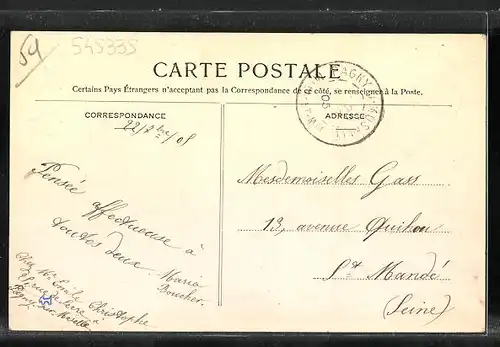 59
545335
CARTE POSTALE
Certains Pays Étrangers n'acceptant pas la Correspondance de ce côté, se renseigner à la Poste.
CORRESPONDANCE
ADRESSE
22/7bre/05
Mesdemoiselles Gass
13, avenue Quihou
St Mandé
(Seine)
Pensée
affectueuse à
toutes deux
Maria
Boucher.
Chez Mr Emile Christophe
à
Pagny-sur-Moselle